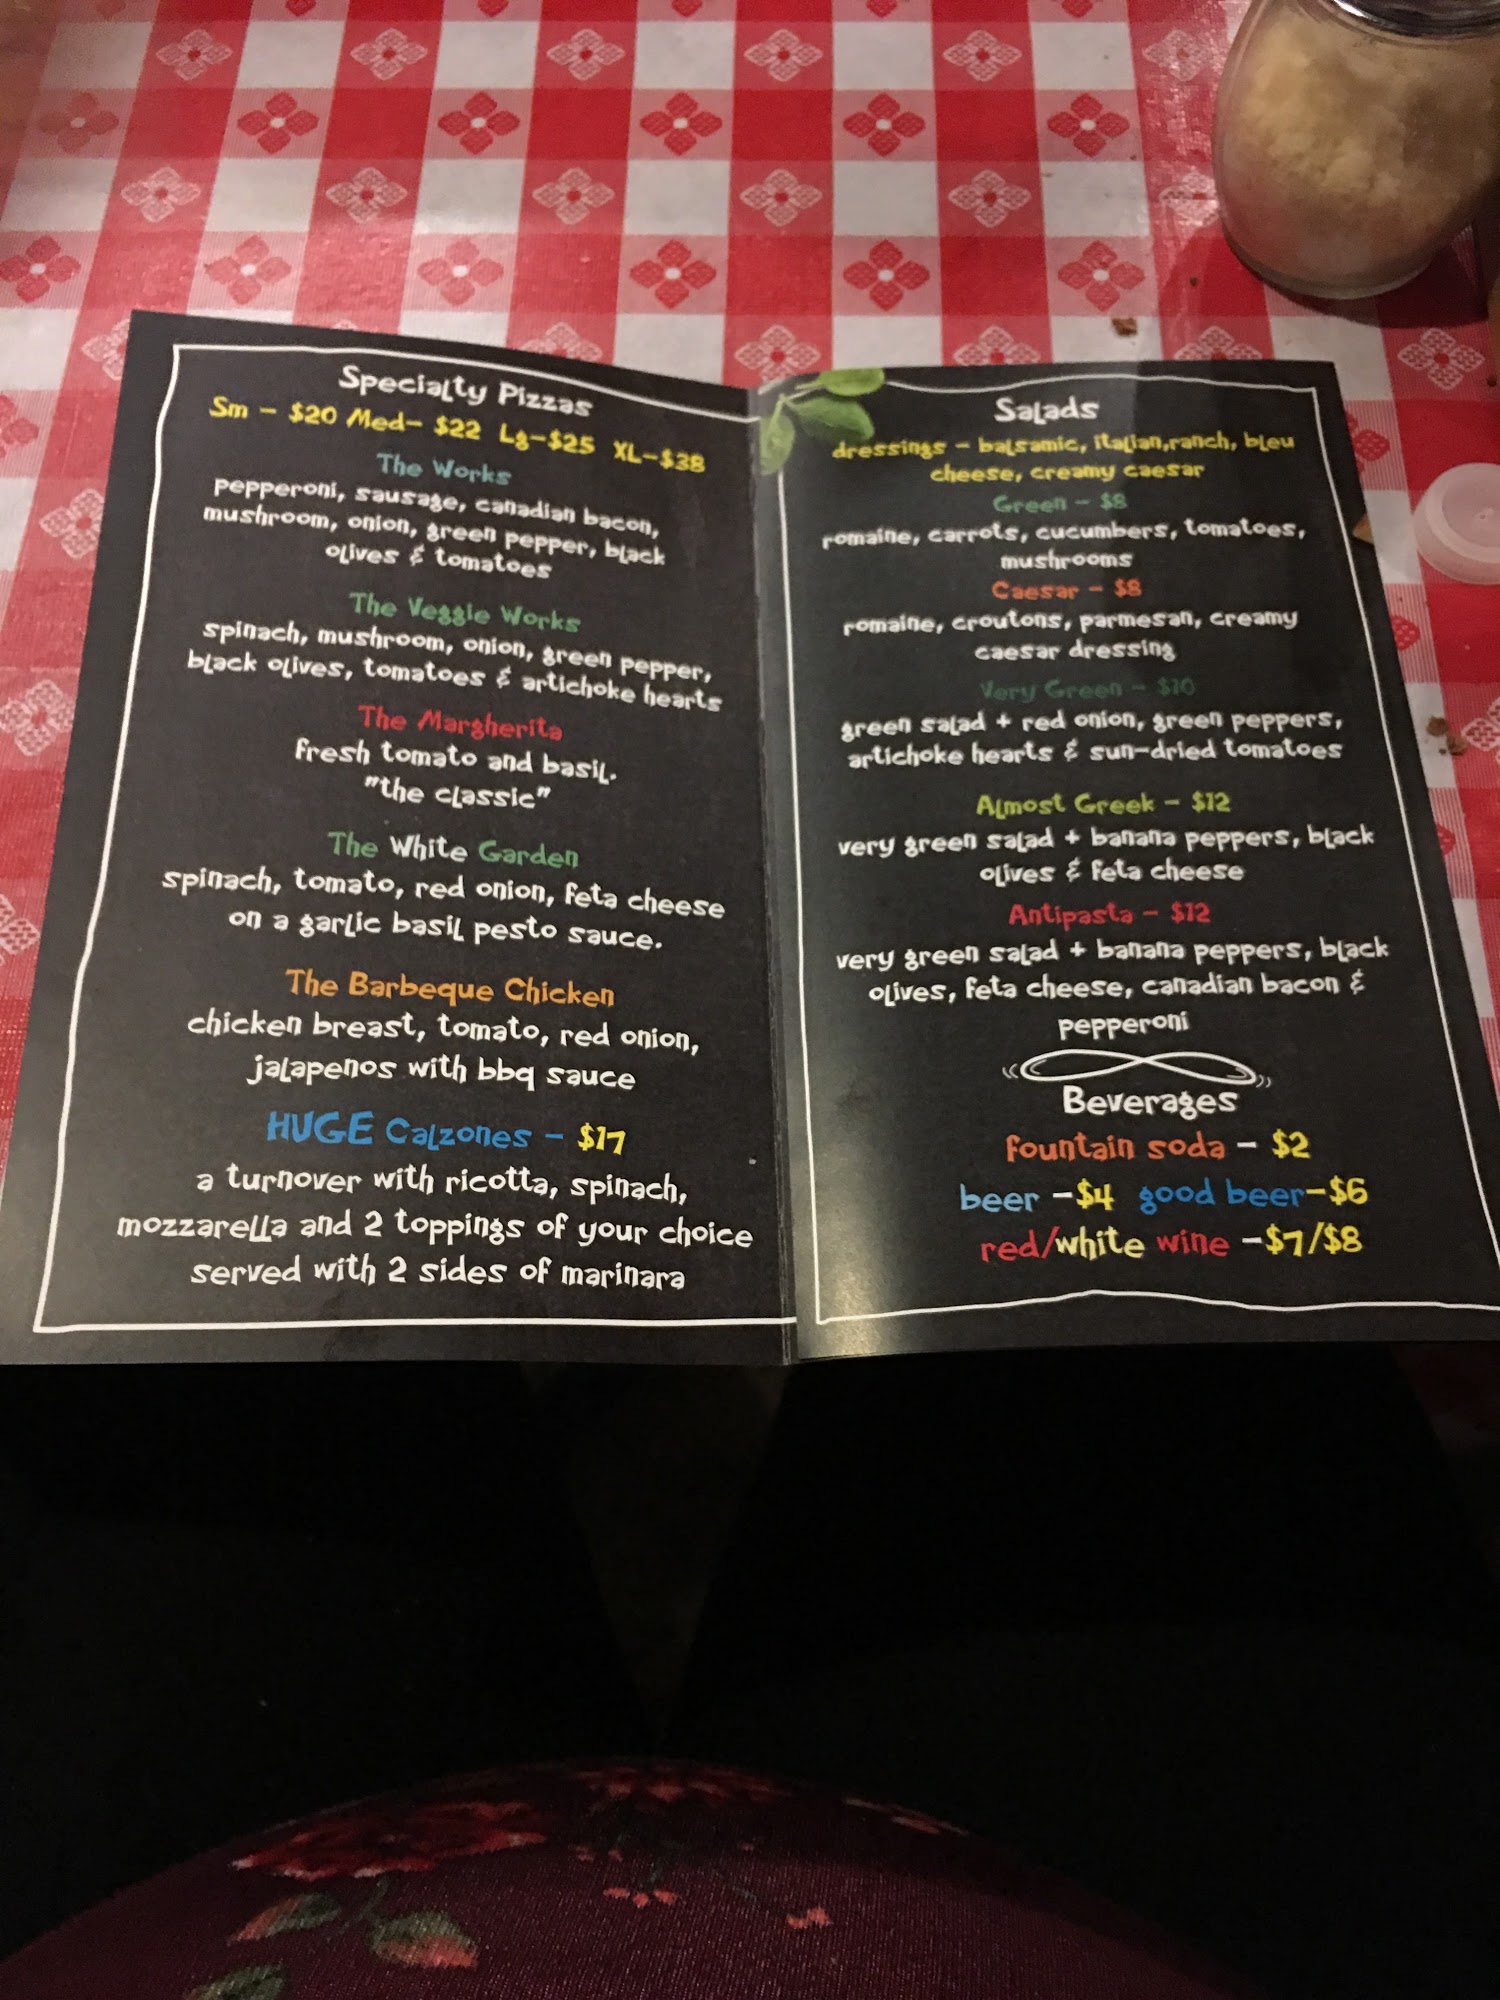 Specialty Pizzas
Sm - $20 Med- $22 Lg-$25 XL-$38
The Works
pepperoni, sausage, canadian bacon,
mushroom, onion, green pepper, black
olives & tomatoes
The Veggie Works
spinach, mushroom, onion, green pepper,
black olives, tomatoes & artichoke hearts
The Margherita
fresh tomato and basil.
"the classic"
The White Garden
spinach, tomato, red onion, feta cheese
on a garlic basil pesto sauce.
The Barbeque Chicken
chicken breast, tomato, red onion,
jalapenos with bbq sauce
HUGE Calzones - $17
a turnover with ricotta, spinach,
mozzarella and 2 toppings of your choice
served with 2 sides of marinara
Salads
dressings - balsamic, italian,ranch, bleu
cheese, creamy caesar
Green - $8
romaine, carrots, cucumbers, tomatoes,
mushrooms
Caesar - $8
romaine, croutons, parmesan, creamy
caesar dressing
Very Green - $10
green salad + red onion, green peppers,
artichoke hearts & sun-dried tomatoes
Almost Greek - $12
very green salad + banana peppers, black
olives & feta cheese
Antipasta - $12
very green salad + banana peppers, black
olives, feta cheese, canadian bacon &
pepperoni
Beverages
fountain soda - $2
beer -$4 good beer-$6
red/white wine -$7/$8